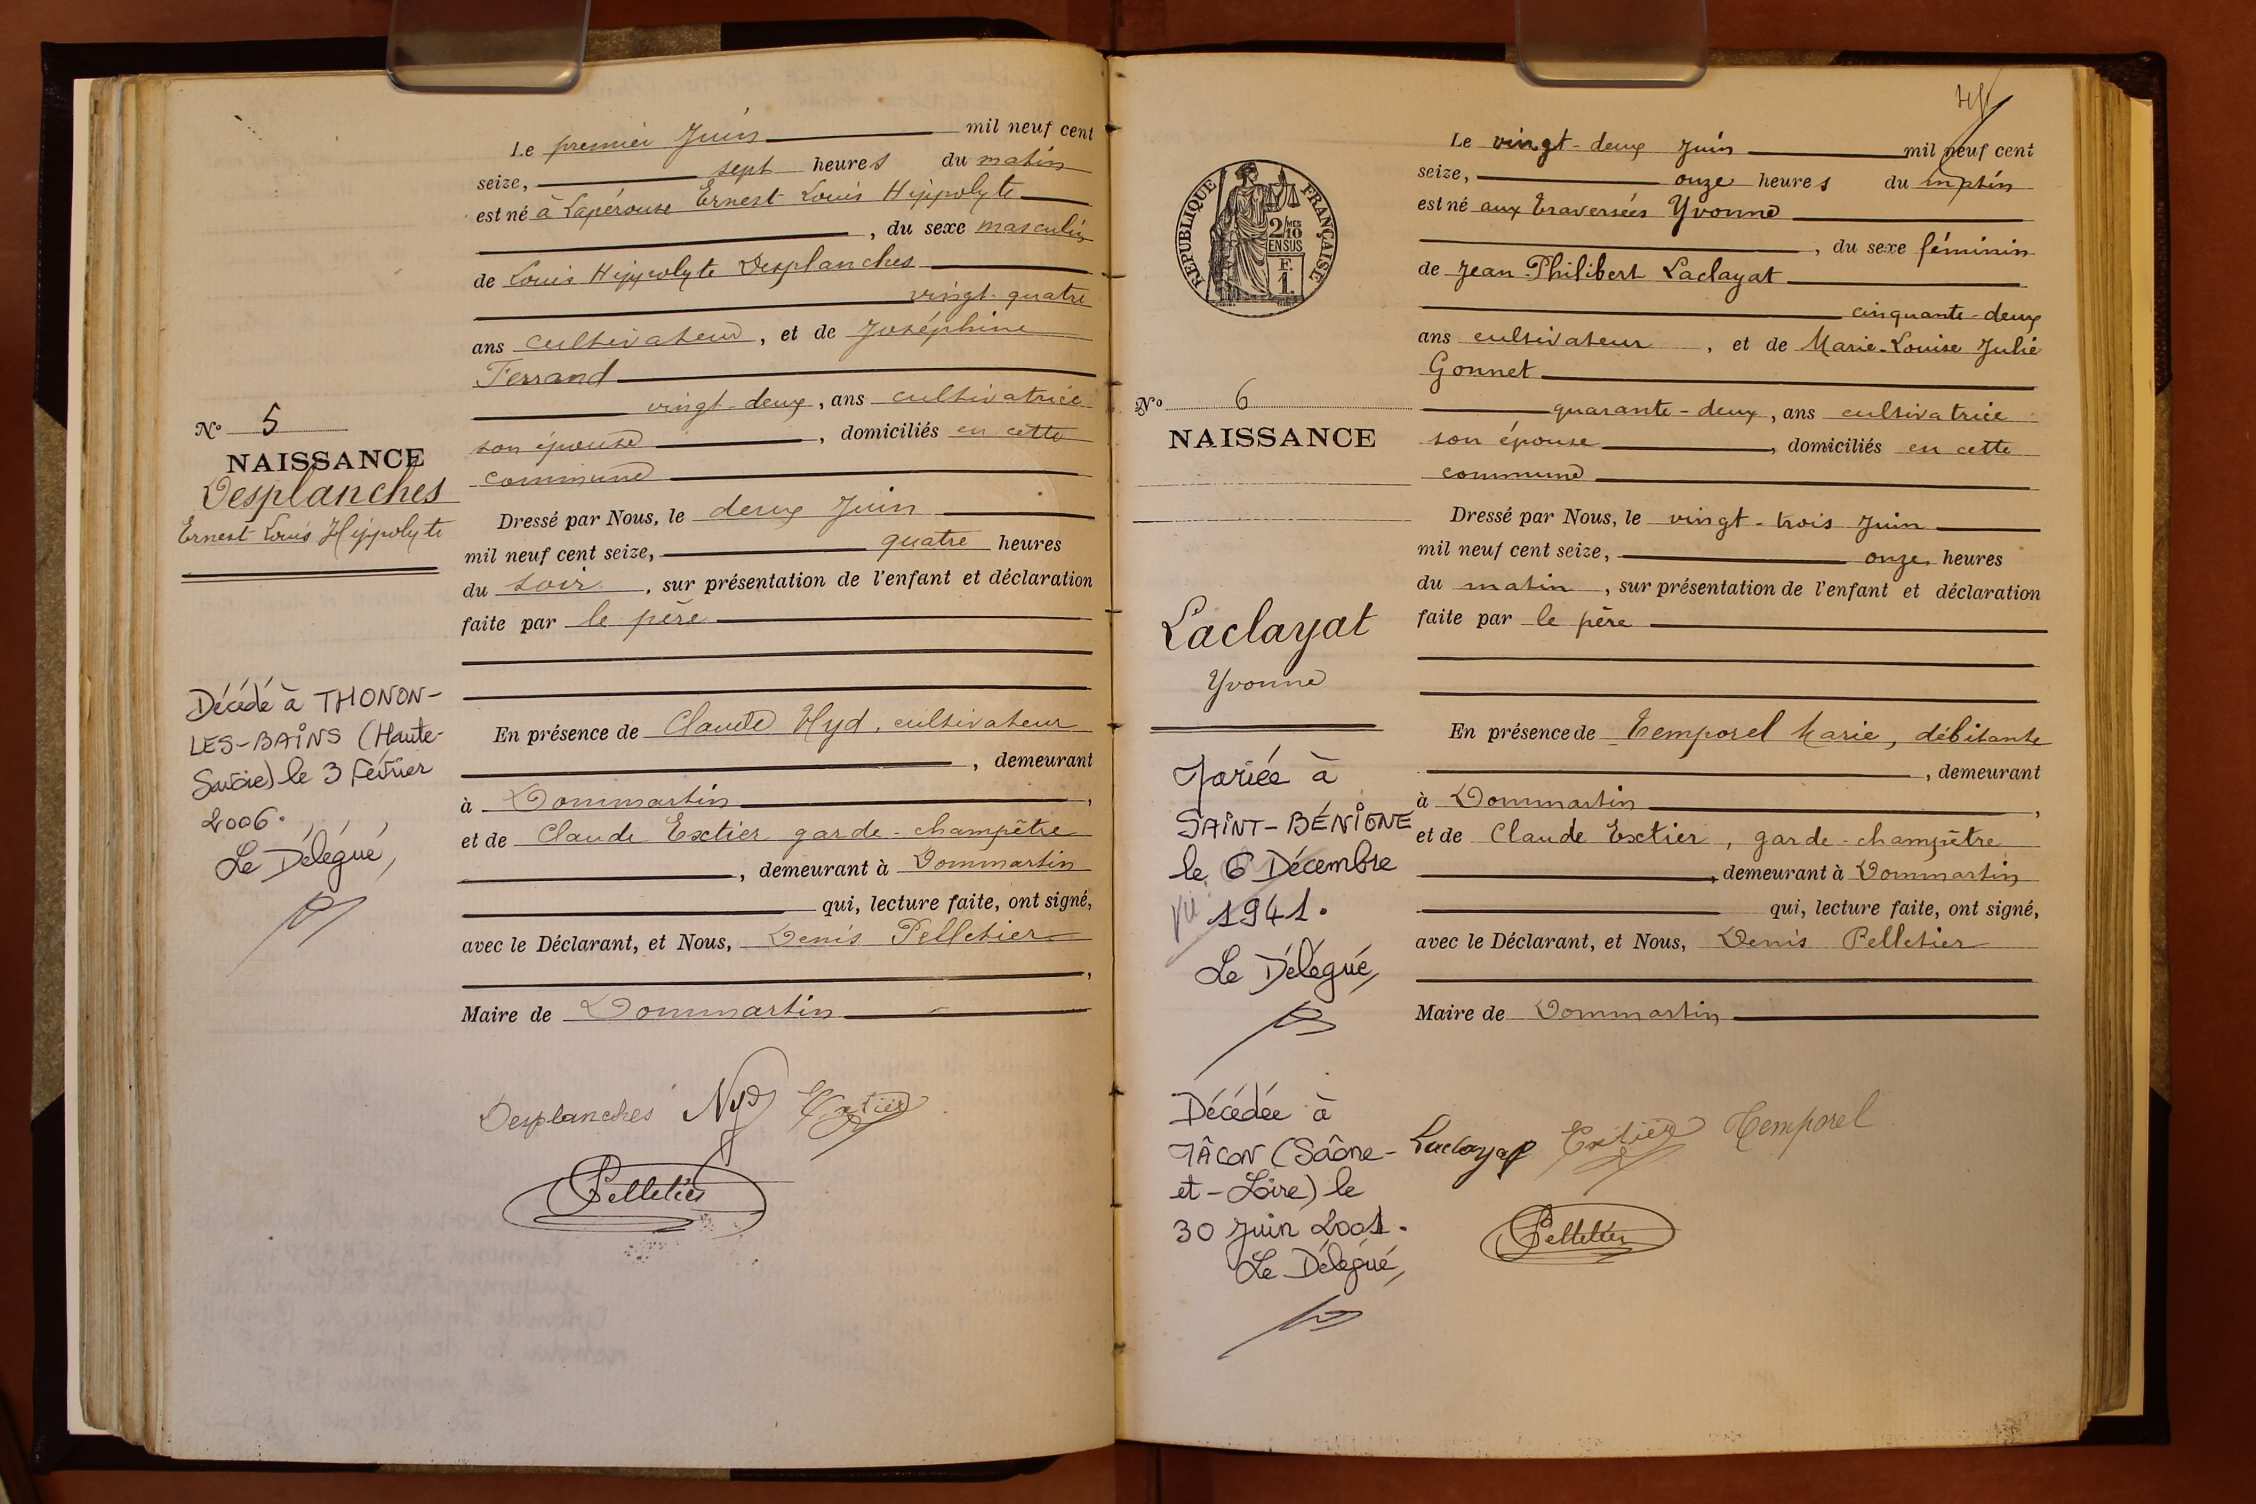 Le premier Juin mil neuf cent
seize, sept heures du matin
est né à Lapérouse Ernest Louis Hippolyte
, du sexe masculin
de Louis Hippolyte Desplanches
vingt-quatre
ans cultivateur, et de Joséphine
Ferrand
vingt-deux, ans cultivatrice
son épouse, domiciliés en cette
commune
Dressé par Nous, le deux Juin
mil neuf cent seize, quatre heures
du soir, sur présentation de l'enfant et déclaration
faite par le père
En présence de Claude Nyd, cultivateur
, demeurant
à Dommartin,
et de Claude Extier garde-champêtre
, demeurant à Dommartin
qui, lecture faite, ont signé,
avec le Déclarant, et Nous, Denis Pelletier
,
Maire de Dommartin
Desplanches Nyd Extier
Pelletier
No 5
NAISSANCE
Desplanches
Ernest Louis Hippolyte
Décédé à THONON-
LES-BAINS (Haute-
Savoie) le 3 Février
2006.
Le Délégué,
Le vingt-deux Juin mil neuf cent
seize, onze heures du matin
est né aux Traversées Yvonne
, du sexe féminin
de Jean Philibert Laclayat
cinquante-deux
ans cultivateur, et de Marie-Louise Julie
Gonnet
quarante-deux, ans cultivatrice
son épouse, domiciliés en cette
commune
Dressé par Nous, le vingt-trois Juin
mil neuf cent seize, onze heures
du matin, sur présentation de l'enfant et déclaration
faite par le père
En présence de Temporel Marie, débitante
, demeurant
à Dommartin,
et de Claude Extier, garde-champêtre
, demeurant à Dommartin
qui, lecture faite, ont signé,
avec le Déclarant, et Nous, Denis Pelletier
Maire de Dommartin
Laclayat Extier Temporel
Pelletier
RÉPUBLIQUE FRANÇAISE
2/10 MES
EN SUS
F.
1.
No 6
NAISSANCE
Laclayat
Yvonne
Mariée à
SAINT-BÉNIGNE
le 6 Décembre
1941.
Le Délégué,
Décédée à
MÂCON (Saône-
et-Loire) le
30 Juin 2001.
Le Délégué,